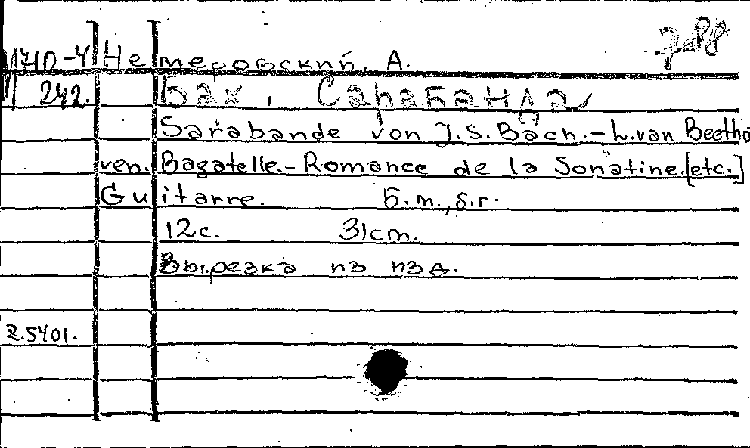 7-88
1710-4 Немеровский, А.
242. Бах, Сарабанда
Sarabande von J.S.Bach.-L.van Beetho
ven. Bagatelle.-Romance de la Sonatine.[etc.]
Guitarre. Б.m.,s.r.
12с. 31cm.
Вырезка из изд.
2.5401.